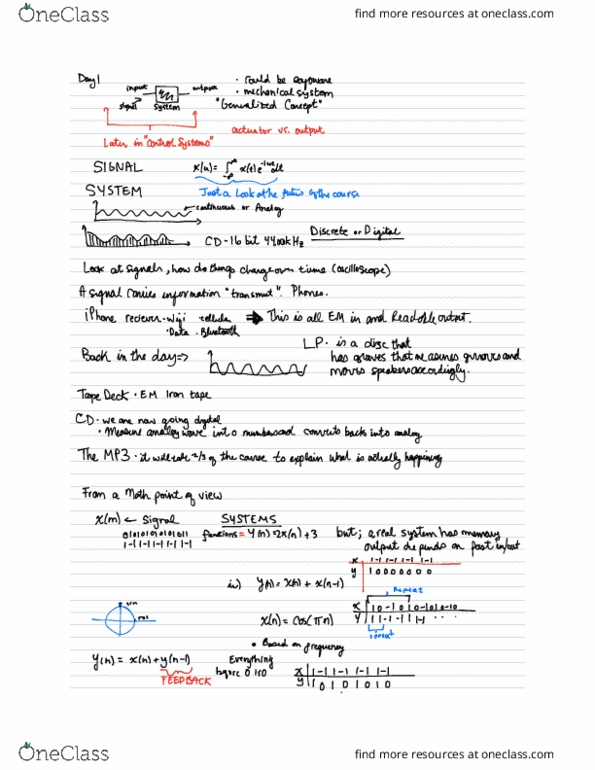 OneClass
find more resources at oneclass.com
Day 1
input
output
signal
system
• could be software
• mechanical system
"Generalized Concept"
actuator vs. output
Later in "Control Systems"
SIGNAL
x(t)e dt
SYSTEM
Just a look at the future of the course
continuous or Analog
CD-16 bit
Discrete or Digital
Look at signals, how do things change over time (oscilloscope)
A signal carries information "transmit". Phones.
iPhone reciever - Wifi
cellular
• Data • Bluetooth
⇒ This is all EM in and Readable output.
Back in the day ⇒
LP. is a disc that
has grooves that measures grooves and
moves speakers accordingly.
Tape Deck • EM Iron tape
CD • we are now going digital
• Measure analog wave into numbers and converts back into analog
The MP3 • it will take 2/3 of the course to explain what is actually happening
From a Math point of view
← Signal
0101010101011
1-11-11-11-11-1
SYSTEMS
functions = Y(n) = 2x(n) + 3
but; a real system has memory
output depends on past in/out
x 1-11-11-11-1
y 1 0 0 0 0 0 0 0
y(n) = x(n) + x(n-1)
repeat
x(n) = cos(πn)
x
y
repeat
• Based on frequency
y(n) = x(n) + y(n-1)
FEEDBACK
Everything
before 0 is 0
x 1-11-11-11-1
y 1 0 1 0 1 0 1 0
OneClass
find more resources at oneclass.com